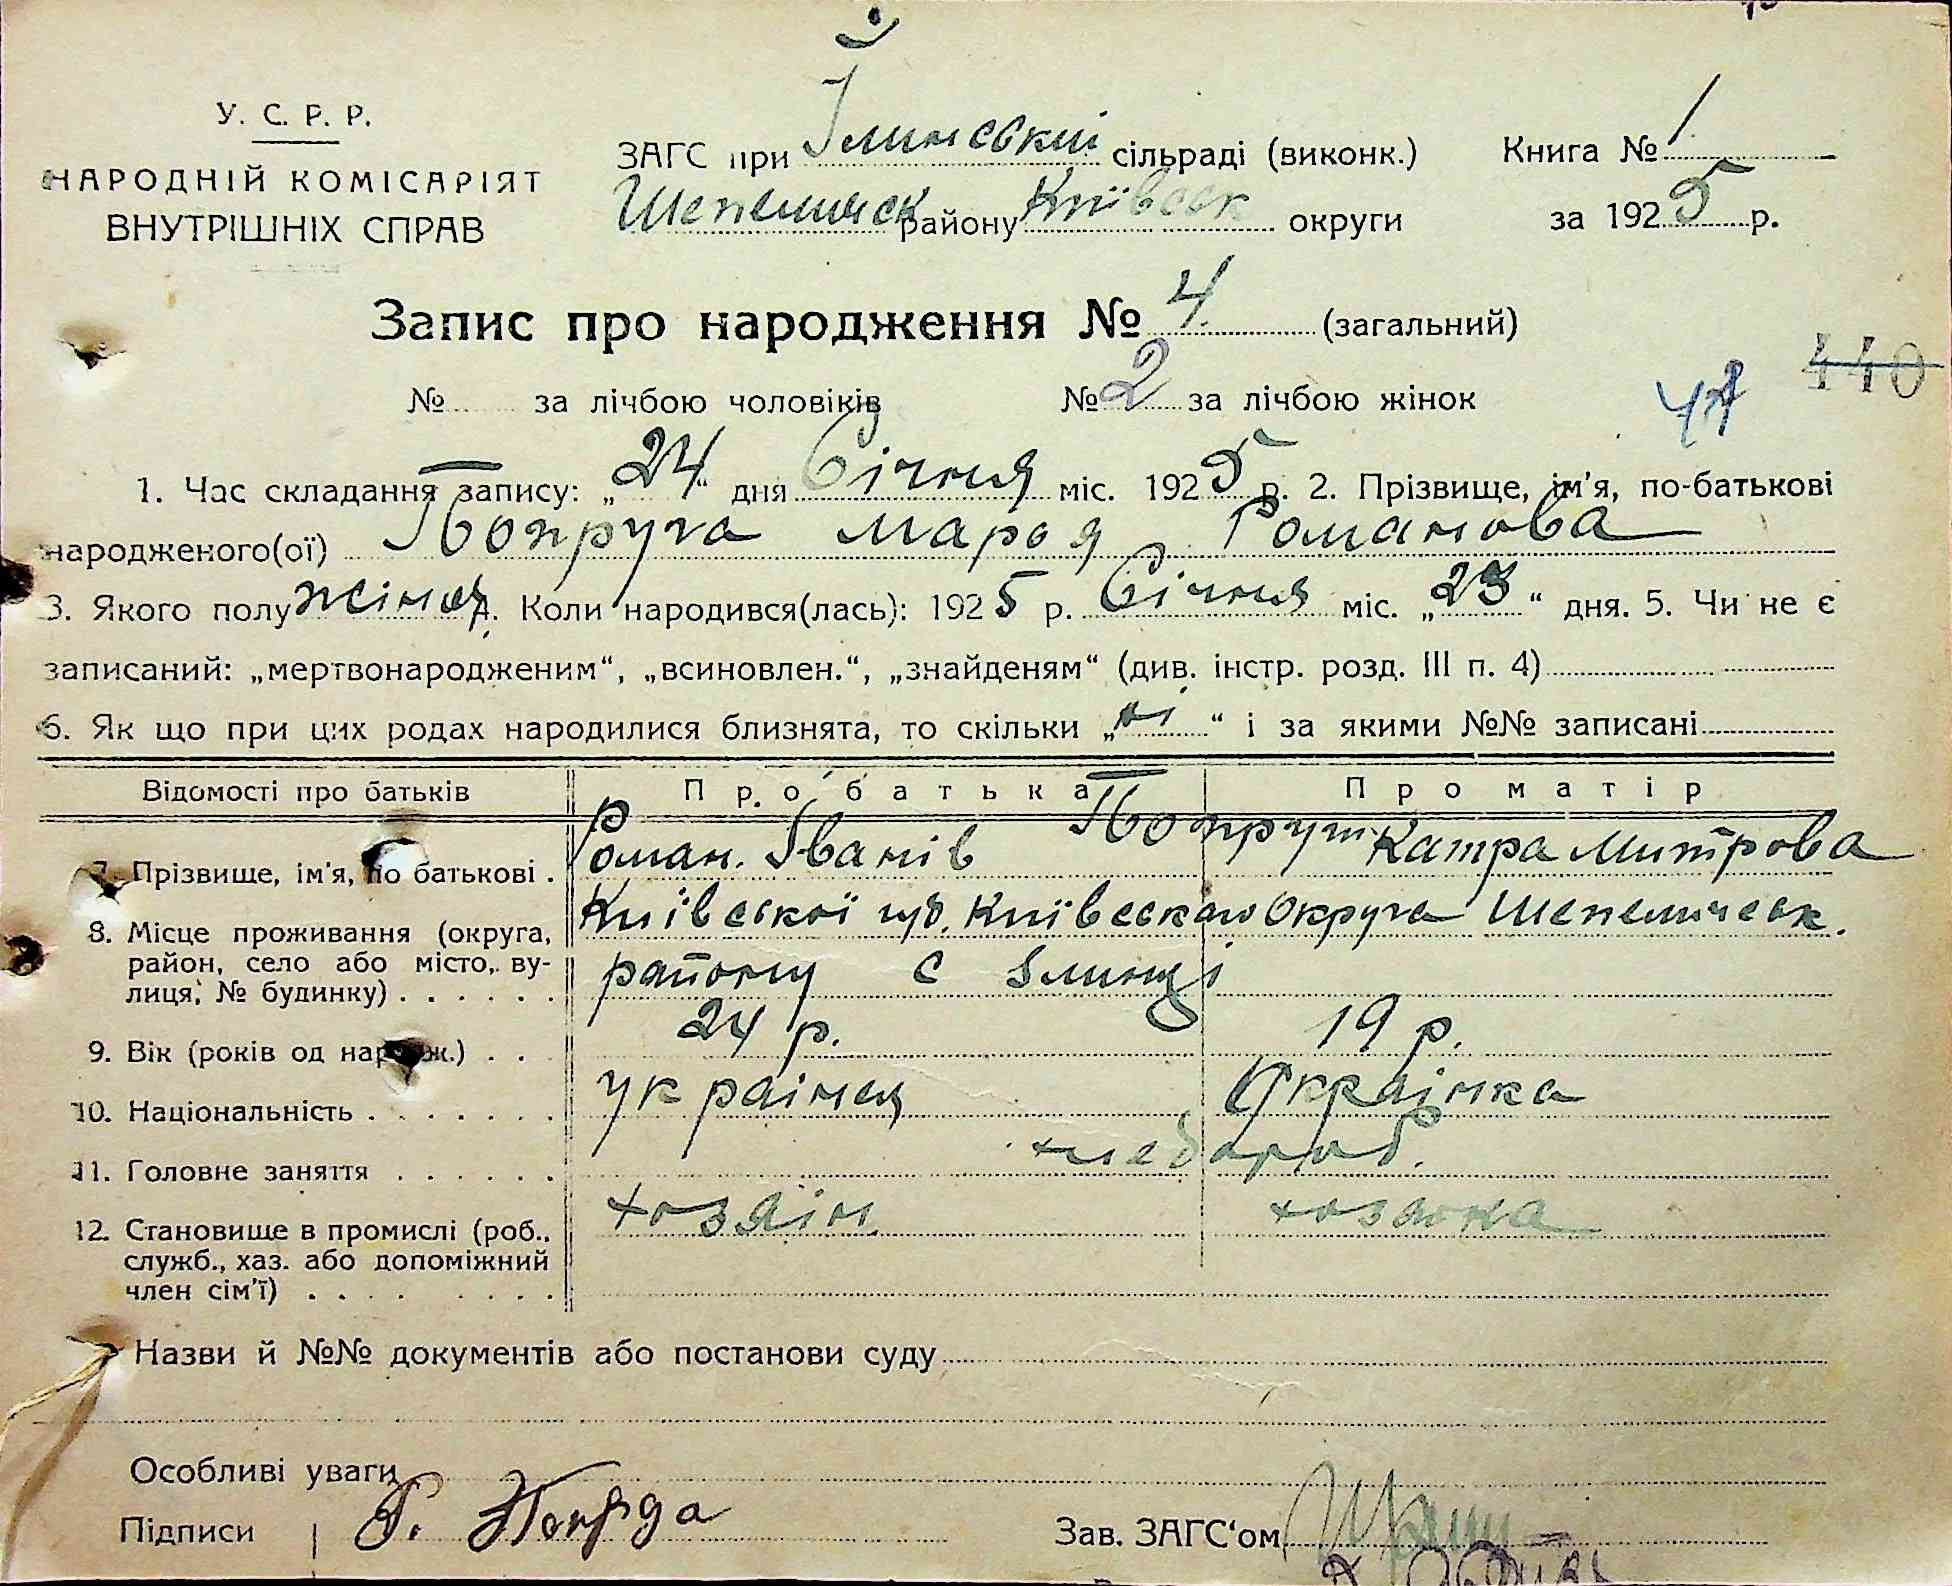 У. С. Р. Р.
НАРОДНІЙ КОМІСАРІЯТ
ВНУТРІШНІХ СПРАВ
ЗАГС при Їлинській сільраді (виконк.)
Шепелическ району Київсск округи
Книга № 1
за 1925 р.
Запис про народження № 4 (загальний)
440
№ за лічбою чоловіків № 2 за лічбою жінок
1. Час складання запису: „24“ дня Січня міс. 1925 р. 2. Прізвище, ім'я, по-батькові
народженого(ої) Попруга Романова
3. Якого полу жіноч 4. Коли народився(лась): 1925 р. Січня міс. „23“ дня. 5. Чи не є
записаний: „мертвонародженим“, „всиновлен.“, „знайденям“ (див. інстр. розд. III п. 4)
6. Як що при цих родах народилися близнята, то скільки „ні“ і за якими №№ записані
Відомості про батьків Про батька Про матір
7. Прізвище, ім'я, по батькові . Роман. Іванів Попруги Катра Митрова
8. Місце проживання (округа, район, село або місто, вулиця, № будинку) Київської губ. Київеская Округа Шепелическ.
району с Ілинці
9. Вік (років од народж.) . . 24 р. 19 р.
10. Національність . . . . . . . українец Українка
11. Головне заняття . . . . . . хлебороб.
12. Становище в промислі (роб., служб., хаз. або допоміжний член сім'ї) . . . . . . . . хозяін хозяйка
Назви й №№ документів або постанови суду
Особливі уваги
Підписи
Зав. ЗАГС'ом